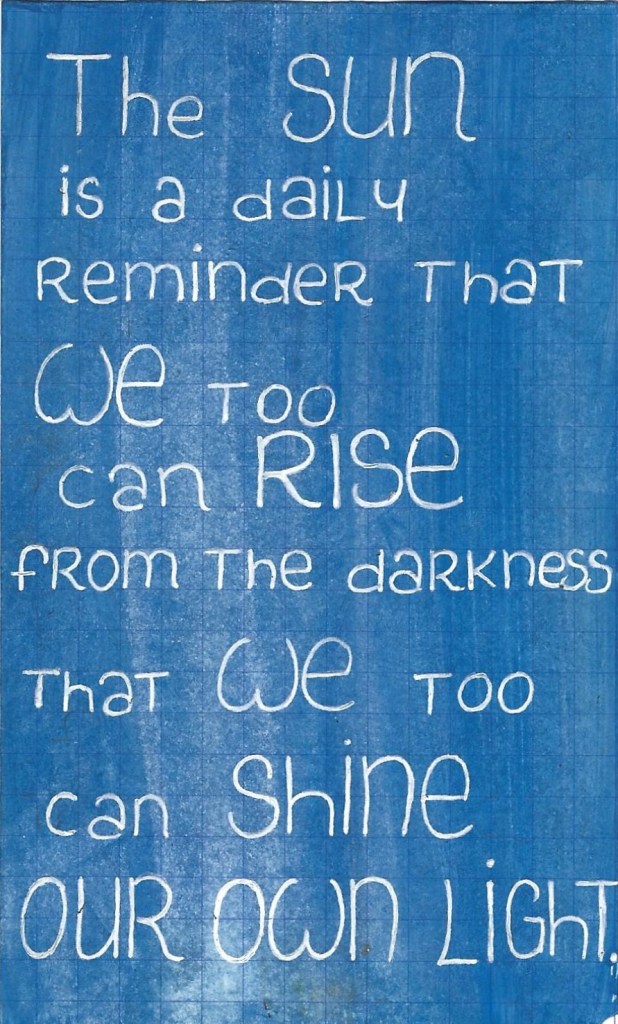 The SUN
is a daily
Reminder That
We Too
can RISE
from The darkness
That we Too
can Shine
OUR OWN LiGhT.